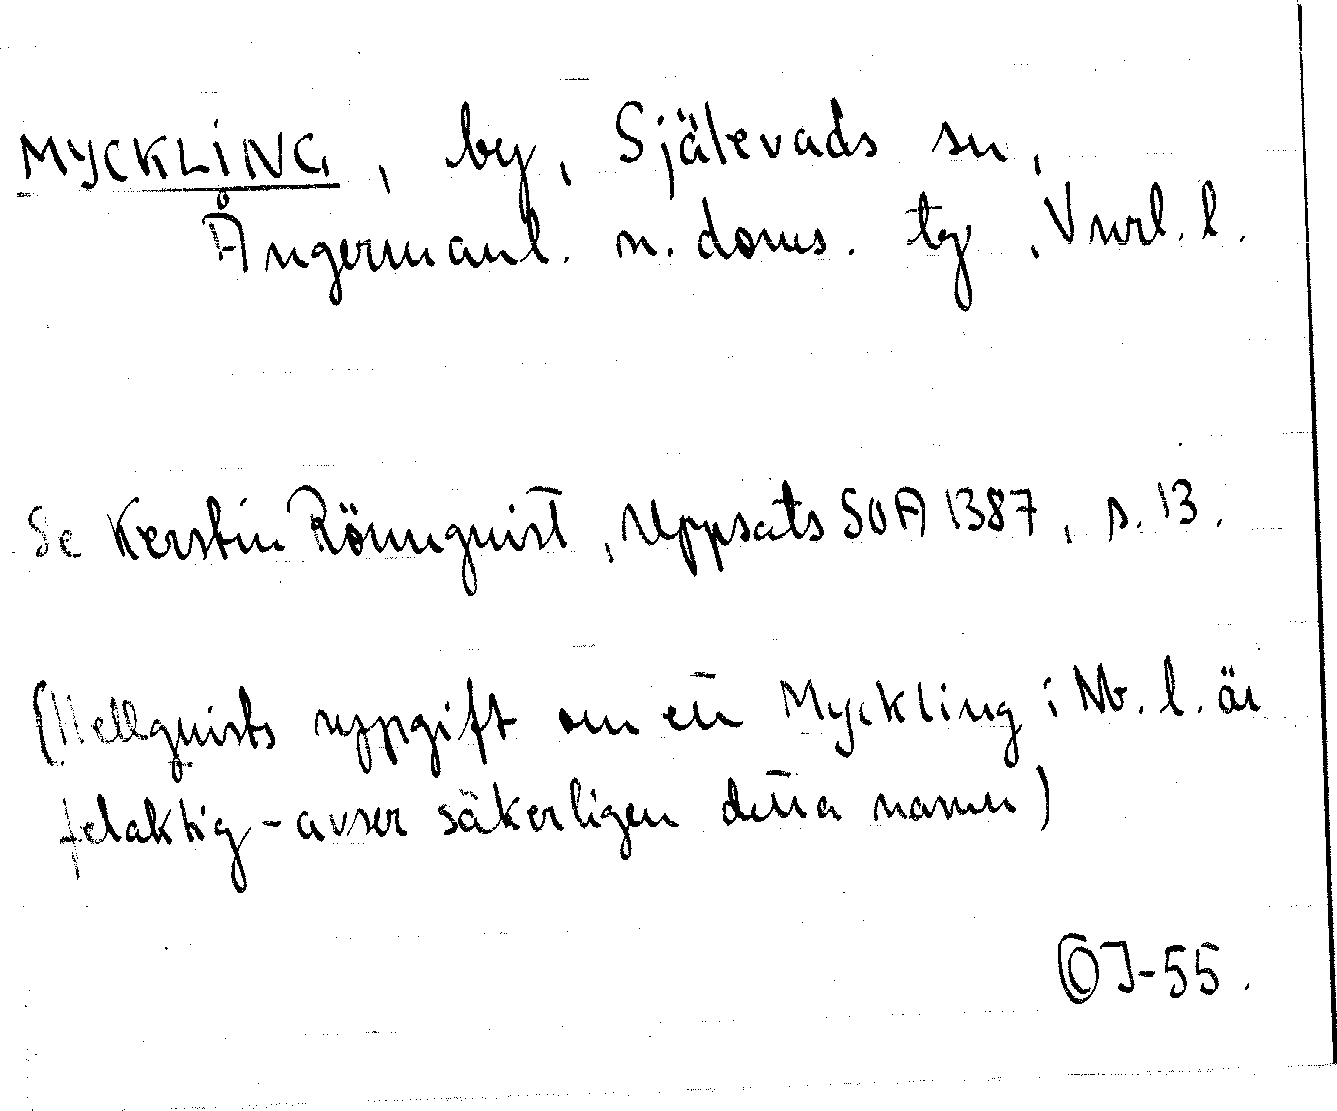 MYCKLING, by, Själevads sn,
Ångermanl. n. doms. tg, Vnrl. l.
Se Kerstin Rönnquist, Uppsats SOA 1387, s. 13.
(Hellquists uppgift om ett Myckling i Nb. l. är
felaktig - avser säkerligen detta namn)
CJ-55.